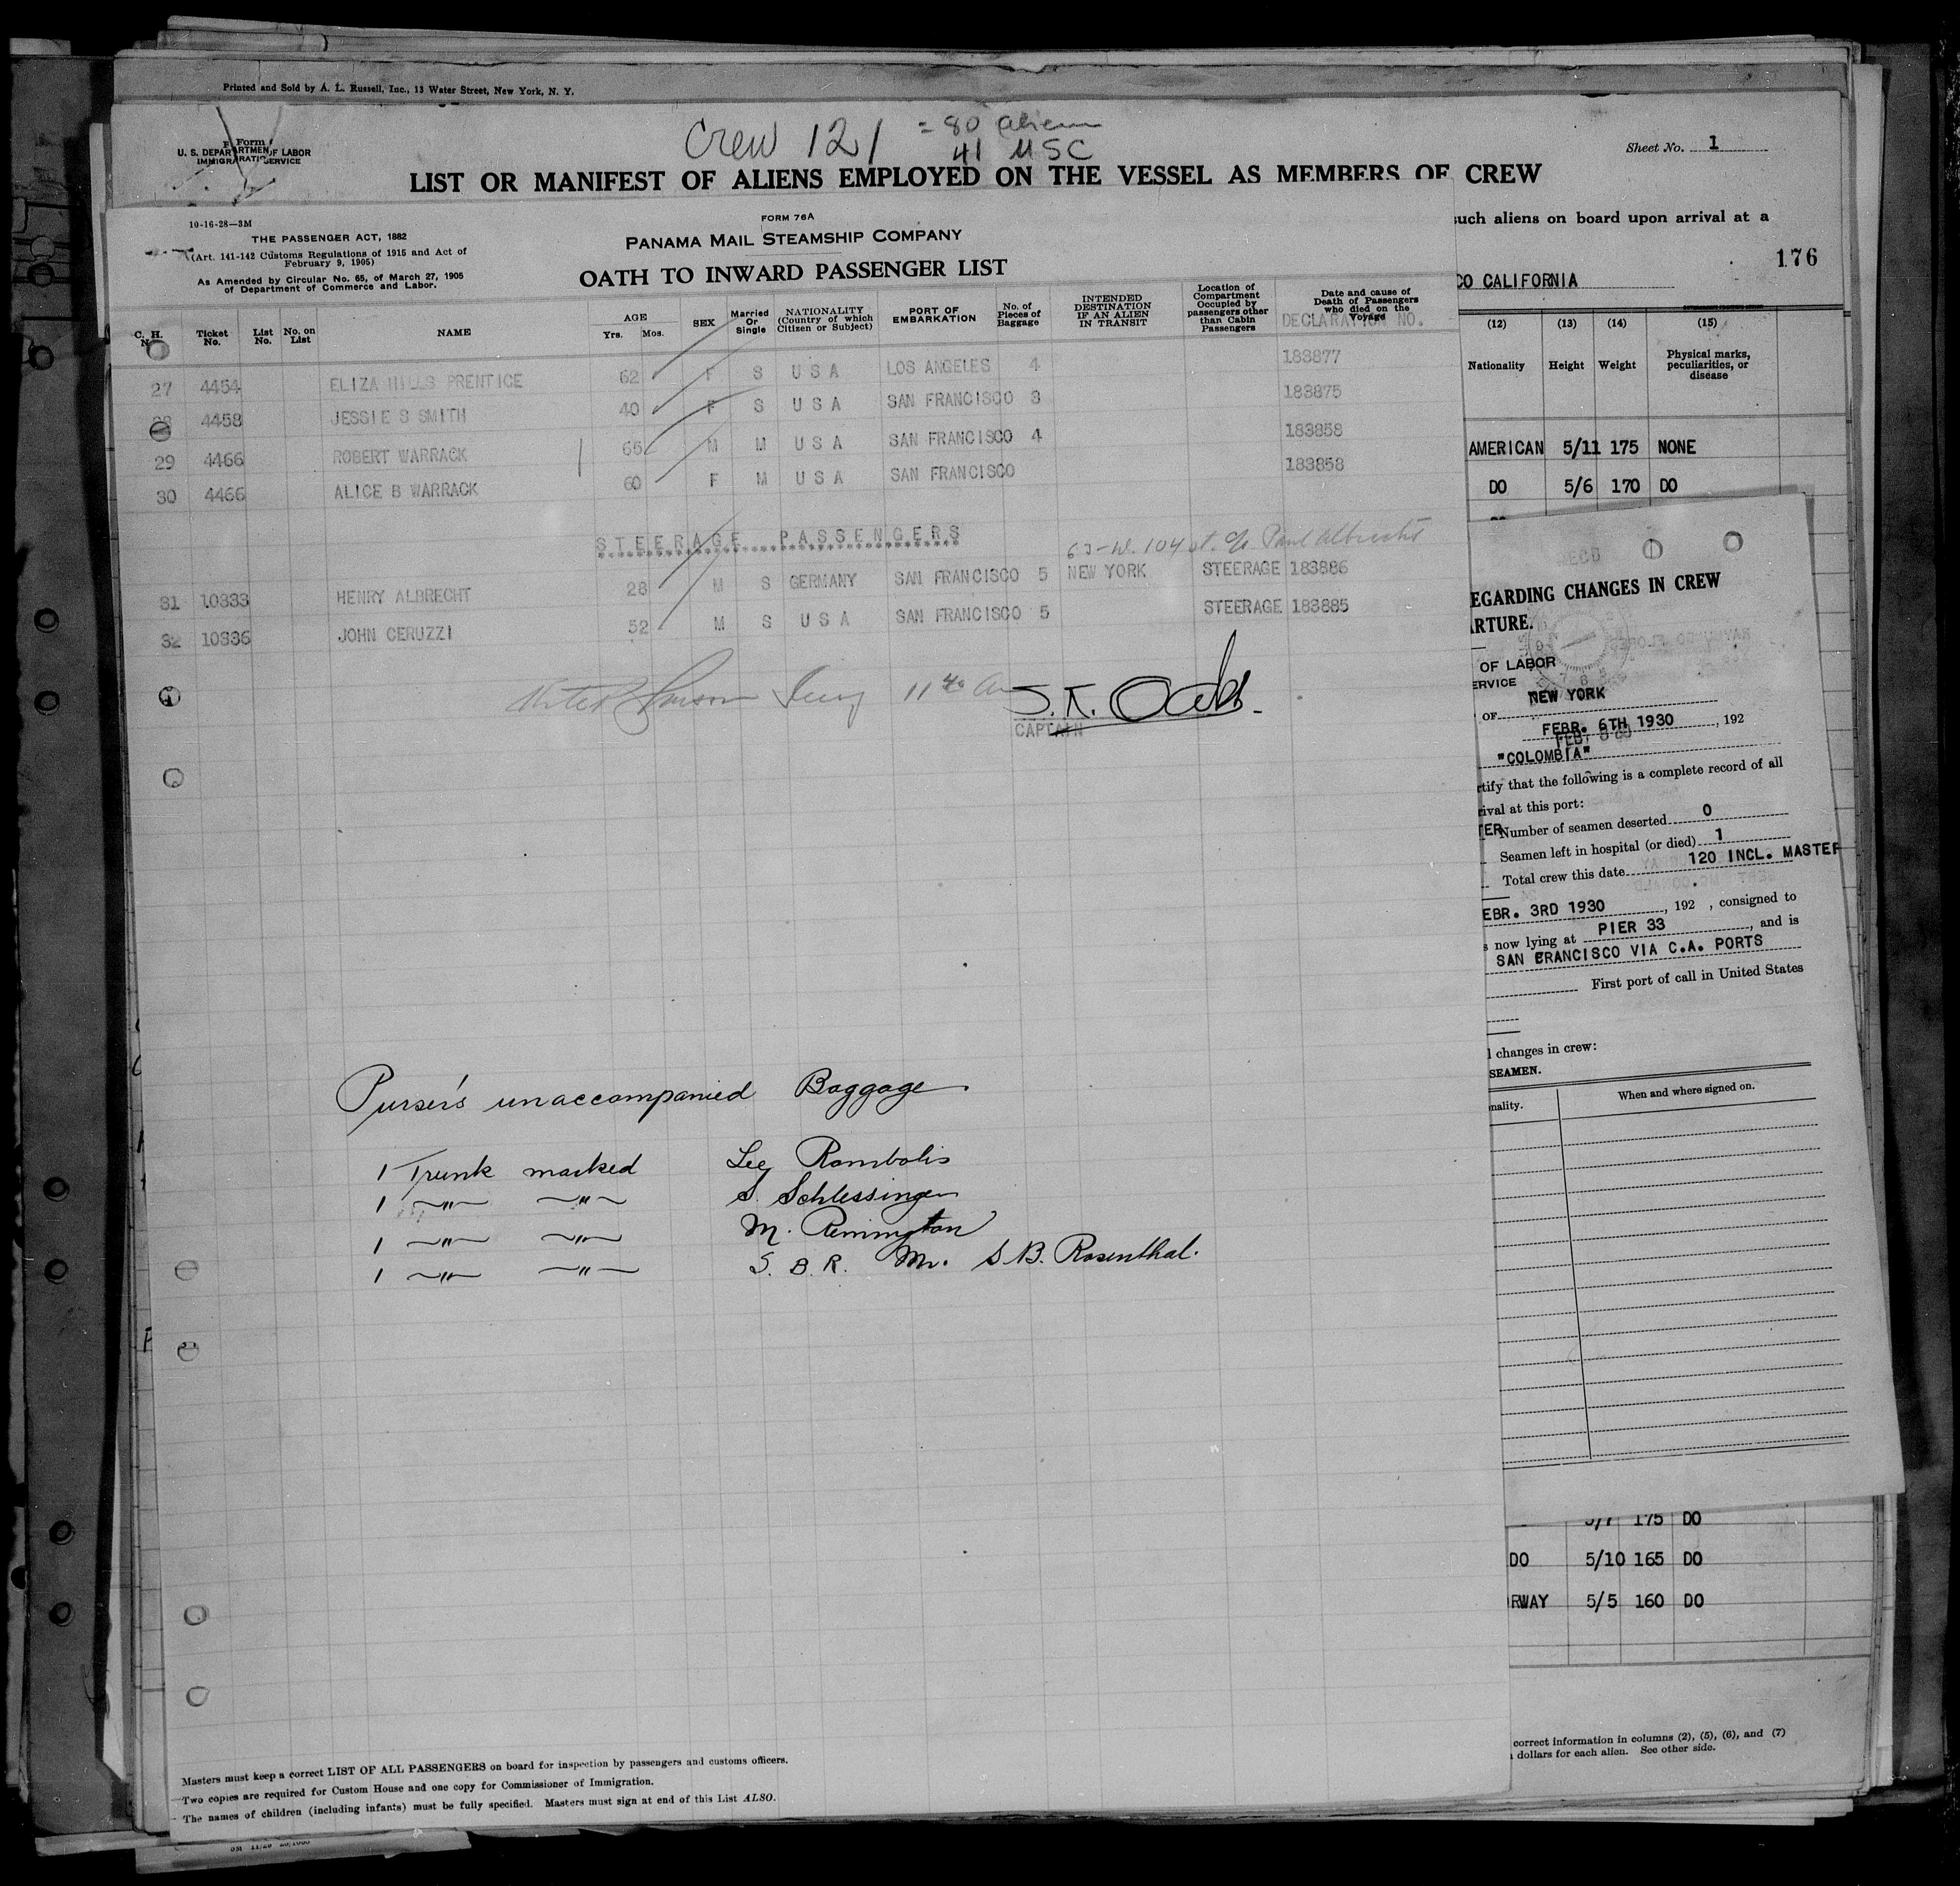 Printed and Sold by A. L. Russell, Inc., 13 Water Street, New York, N. Y.
Form
U. S. DEPARTMENT OF LABOR
IMMIGRATION SERVICE
Crew 121 = 80 aliens
41 USC
Sheet No. 1
LIST OR MANIFEST OF ALIENS EMPLOYED ON THE VESSEL AS MEMBERS OF CREW
such aliens on board upon arrival at a
176
CO CALIFORNIA
(12) (13) (14) (15)
Nationality Height Weight Physical marks, peculiarities, or disease
AMERICAN 5/11 175 NONE
DO 5/6 170 DO
10-16-28—3M
THE PASSENGER ACT, 1882
(Art. 141-142 Customs Regulations of 1915 and Act of
February 9, 1905)
As Amended by Circular No. 65, of March 27, 1905
of Department of Commerce and Labor.
FORM 76A
PANAMA MAIL STEAMSHIP COMPANY
OATH TO INWARD PASSENGER LIST
C. H. No. Ticket No. List No. No. on List NAME AGE Yrs. Mos. SEX Married Or Single NATIONALITY (Country of which Citizen or Subject) PORT OF EMBARKATION No. of Pieces of Baggage INTENDED DESTINATION IF AN ALIEN IN TRANSIT Location of Compartment Occupied by passengers other than Cabin Passengers Date and cause of Death of Passengers who died on the Voyage
DECLARATION NO.
27 4454 ELIZA HILLS PRENTICE 62 F S U S A LOS ANGELES 4 183877
28 4458 JESSIE S SMITH 40 F S U S A SAN FRANCISCO 3 183875
29 4466 ROBERT WARRACK 65 M M U S A SAN FRANCISCO 4 183858
30 4466 ALICE B WARRACK 60 F M U S A SAN FRANCISCO 183858
STEERAGE PASSENGERS
63-W. 104 st. c/o Paul Albrecht
31 10333 HENRY ALBRECHT 28 M S GERMANY SAN FRANCISCO 5 NEW YORK STEERAGE 183886
32 10336 JOHN CERUZZI 52 M S U S A SAN FRANCISCO 5 STEERAGE 183885
11th
CAPTAIN
Purser's unaccompanied Baggage
1 Trunk marked Lee Rombolis
1 —"— —"— S. Schlessinger
1 —"— —"— M. Remington
1 —"— —"— S. B. R. Mr. S. B. Rosenthal.
Masters must keep a correct LIST OF ALL PASSENGERS on board for inspection by passengers and customs officers.
Two copies are required for Custom House and one copy for Commissioner of Immigration.
The names of children (including infants) must be fully specified. Masters must sign at end of this List ALSO.
EGARDING CHANGES IN CREW
RTURE.
OF LABOR
ERVICE
OF NEW YORK
FEBR. 6TH 1930, 192
"COLOMBIA"
rtify that the following is a complete record of all
rival at this port:
TER
Number of seamen deserted 0
Seamen left in hospital (or died) 1
Total crew this date 120 INCL. MASTER
EBR. 3RD 1930, 192 , consigned to
s now lying at PIER 33, and is
SAN FRANCISCO VIA C.A. PORTS
First port of call in United States
l changes in crew:
SEAMEN.
nality. When and where signed on.
5/7 175 DO
DO 5/10 165 DO
RWAY 5/5 160 DO
correct information in columns (2), (5), (6), and (7)
dollars for each alien. See other side.